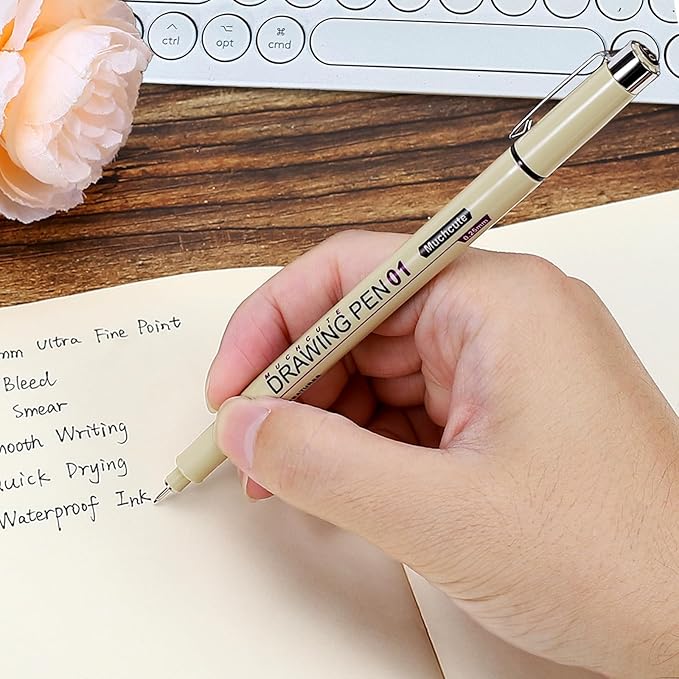 ctrl
opt
cmd
Muchcute
0.25mm
MUCHCUTE
DRAWING PEN 01
mm Ultra Fine Point
Bleed
Smear
mooth Writing
uick Drying
Waterproof Ink